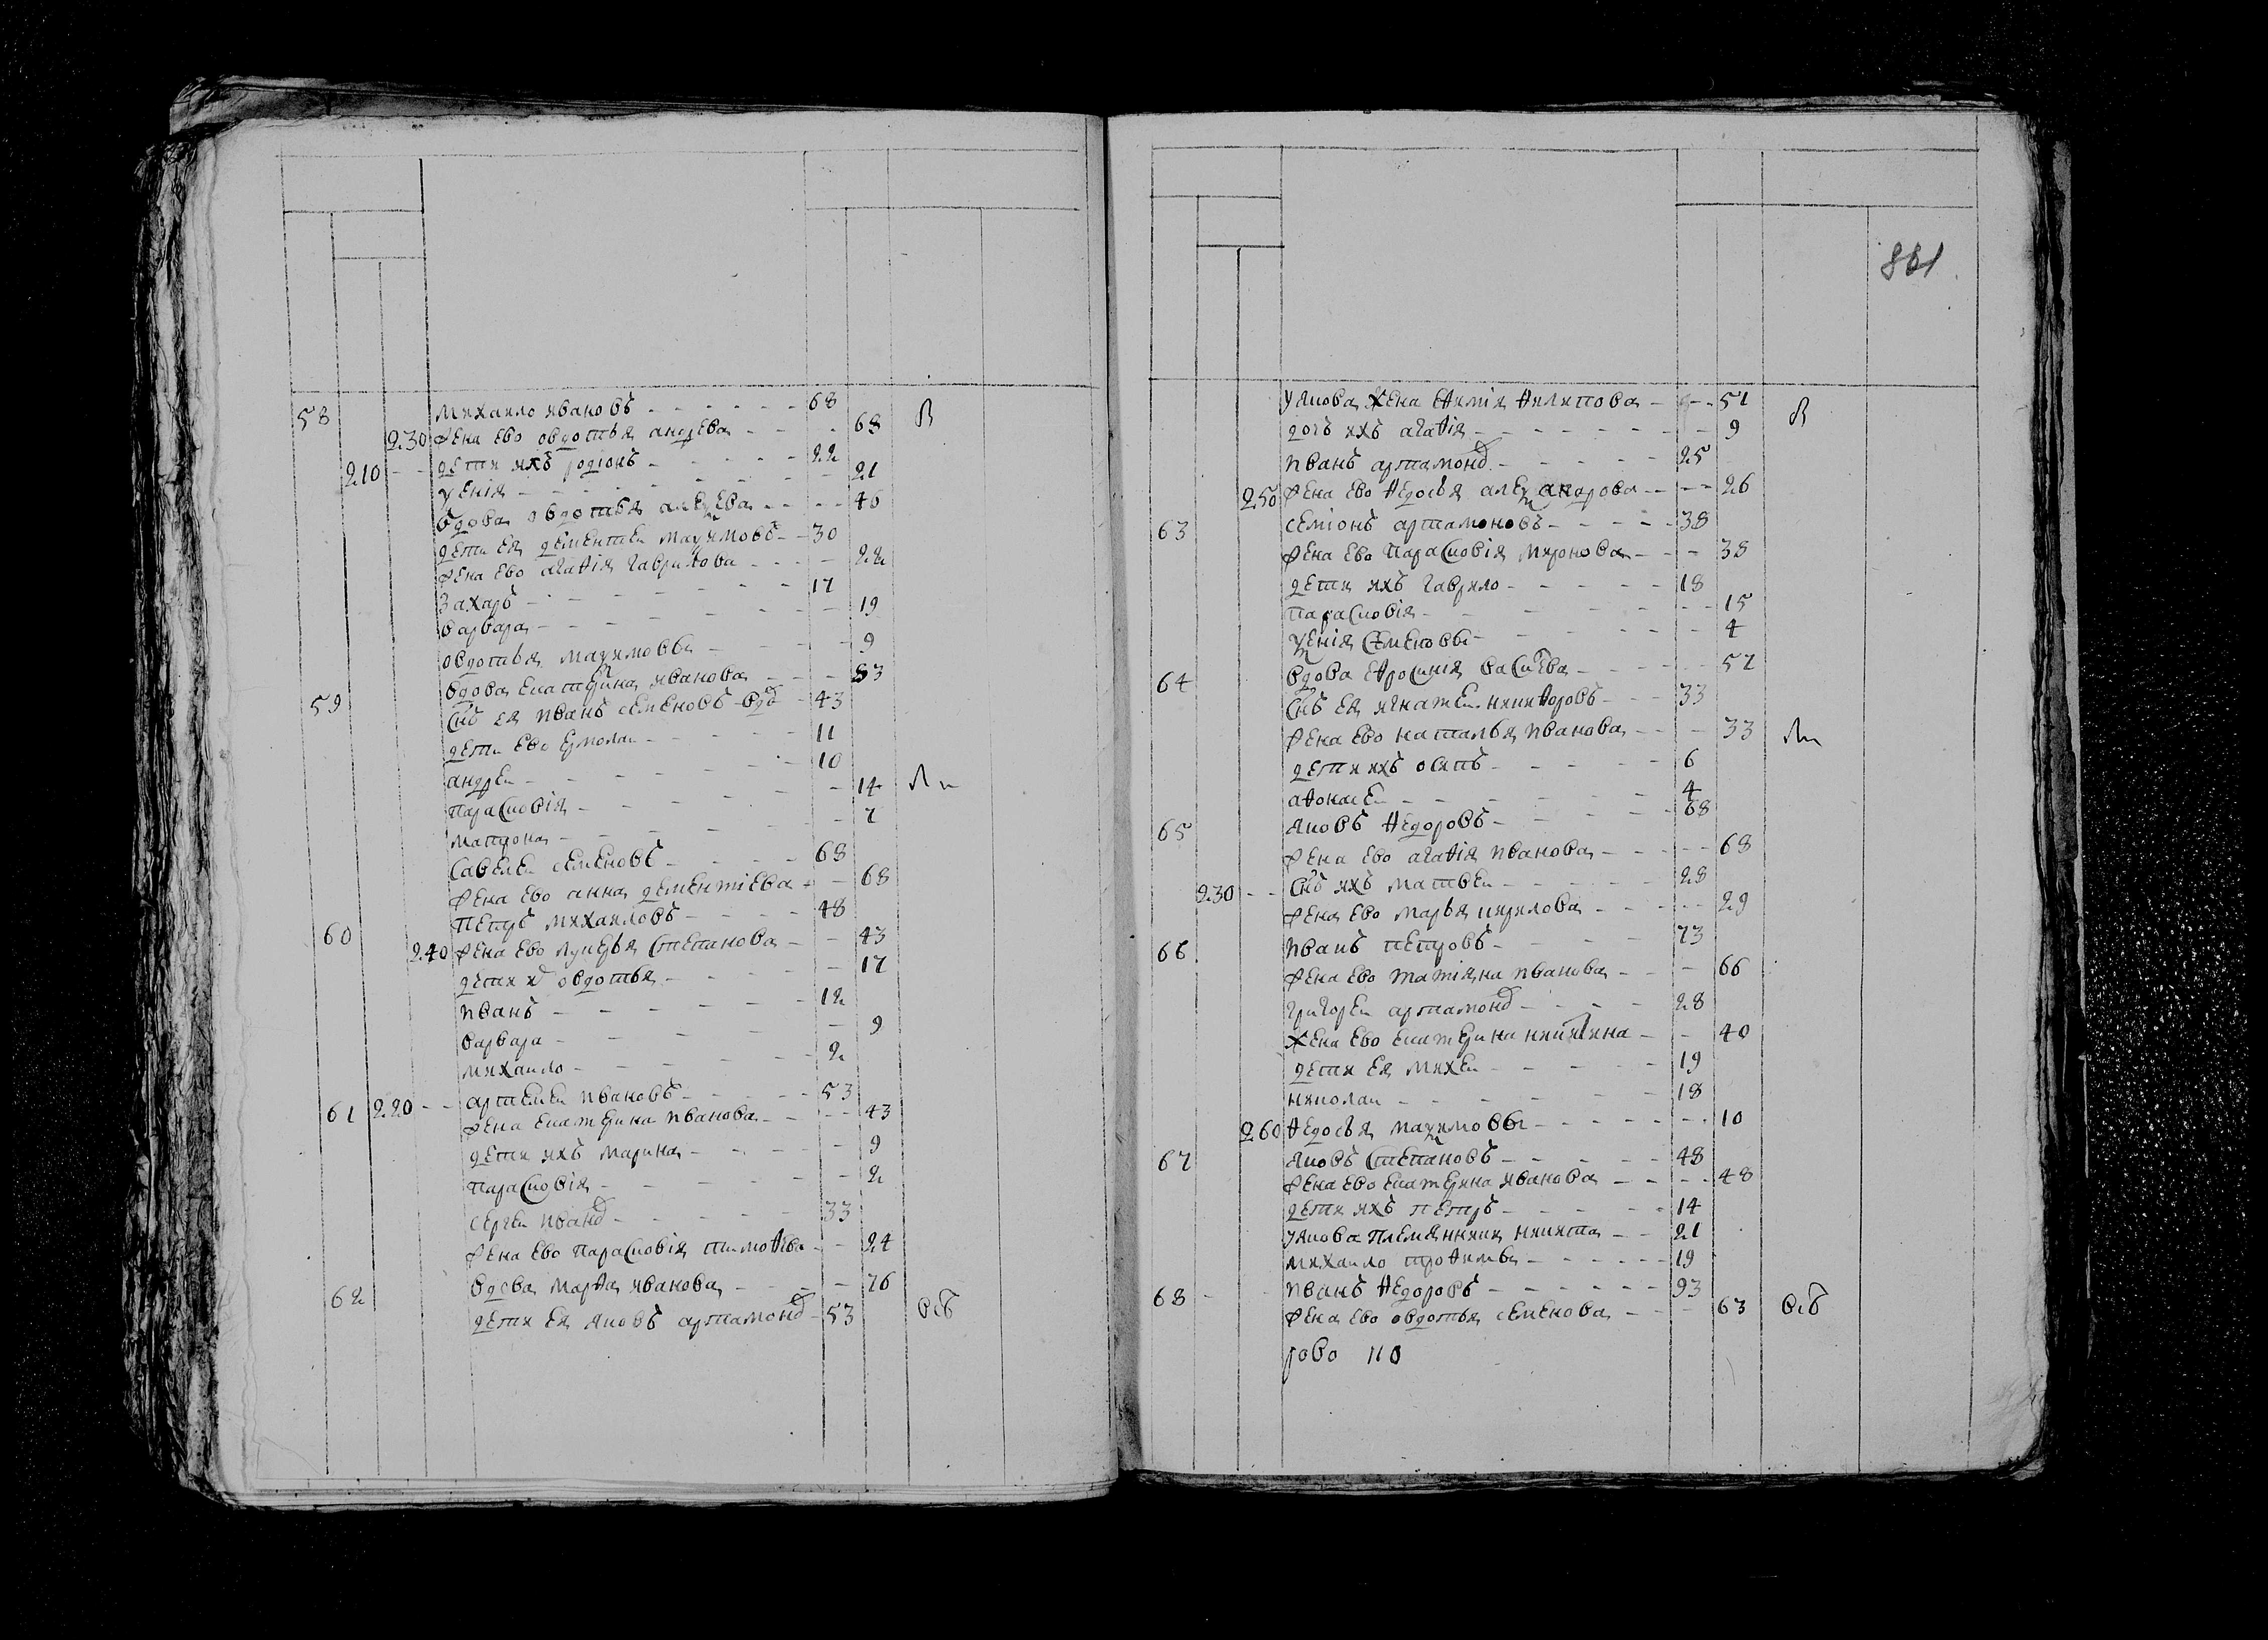 58 михаило ивановъ - - - - - - 68
230 жена ево овдотья андрева - - - - 68 в
210 - - дети ихъ родіонъ - - - - - 22
ѯенія - - - - - - - - 21
вдова овдотья алеѯева - - - - 40
дети ея дементеи маѯимовъ - - 30
жена ево агафія гаврилова - - - - 22
захаръ - - - - - - - 17
варвара - - - - - - - - 19
овдотья маѯимовы - - - - 9
59 вдова екатерина иванова - - - - 83
снъ ея иванъ семеновъ вдо - 43
дети ево ермолаи - - - - - 11
андреи - - - - - - 10
парасковія - - - - - - 14 ли
матрона - - - - - - 7
савелеи семеновъ - - - - - 68
жена ево анна дементіева - - 68
60 петръ михаиловъ - - - - 48
240 жена ево лукерья степанова - - 43
дети их овдотья - - - - - 17
иванъ - - - - - - 12
варвара - - - - - - 9
михаило - - - - - - 2
61 220 - - артемеи ивановъ - - - - - 53
жена екатерина иванова - - - - 43
дети ихъ марина - - - - - 9
парасковія - - - - - - 2
сергеи иванов - - - - - 33
жена ево парасковія тимофева - - 24
62 вдова марфа иванова - - - - 76
дети ея яковъ артамонов - 53 всъ
881
якова жена ефимія филипова - - - 51
дочь ихъ агафія - - - - - - - - 9 в
иванъ артамонов - - - - - 25
250 жена ево федосья алеѯандрова - - - - 26
63 семіонъ артамоновъ - - - - - 38
жена ево парасковія миронова - - - 38
дети ихъ гаврило - - - - - 18
парасковія - - - - - - - 15
ѯенія семеновы - - - - - - 4
64 вдова ефросинія васильева - - - - - 57
снъ ея игнатеи никифоровъ - - - 33
жена ево наталья иванова - - - - 33 ли
дети ихъ осипъ - - - - - 6
афонасеи - - - - - - 4
65 яковъ федоровъ - - - - - 68
жена ево агафія иванова - - - - - 68
230 - - снъ ихъ матвеи - - - - - 28
жена ево марья кирилова - - - - - 29
66 иванъ петровъ - - - - - 73
жена ево татіяна иванова - - - 66
григореи артамонов - - - - 28
жена ево екатерина никитина - - 40
дети ея михеи - - - - - 19
николаи - - - - - - 18
260 федосья маѯимовы - - - - - - 10
67 яковъ степановъ - - - - - 48
жена ево екатерина иванова - - - - 48
дети ихъ петръ - - - - - 14
якова племянники никита - - 21
михаило трофимвы - - - - - 19
68 - иванъ федоровъ - - - - - - 93
жена ево овдотья семенова - - - 63 всъ
рово по